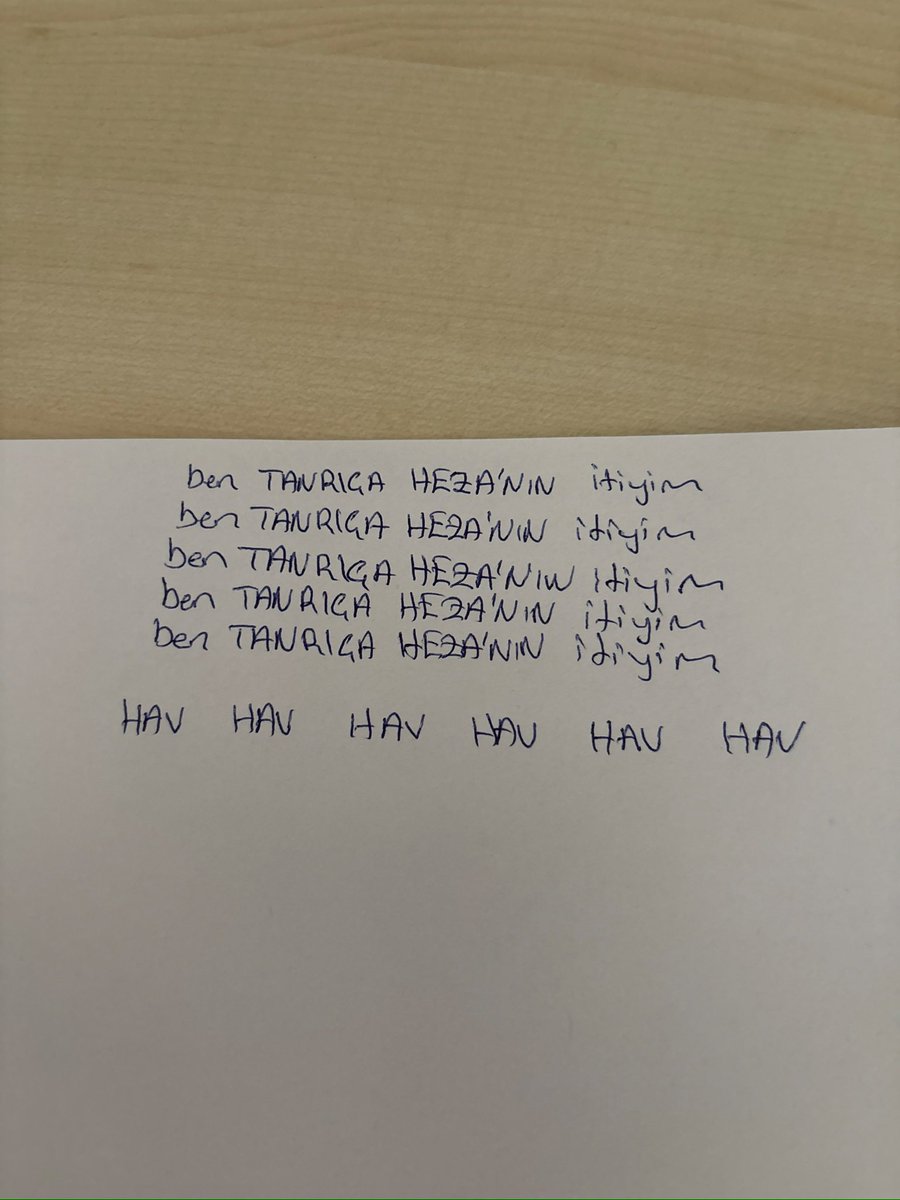 ben TANRIÇA HEZA'NIN itiyim
ben TANRIÇA HEZA'NIN itiyim
ben TANRIÇA HEZA'NIN itiyim
ben TANRIÇA HEZA'NIN itiyim
ben TANRIÇA HEZA'NIN itiyim
HAV HAV HAV HAV HAV HAV